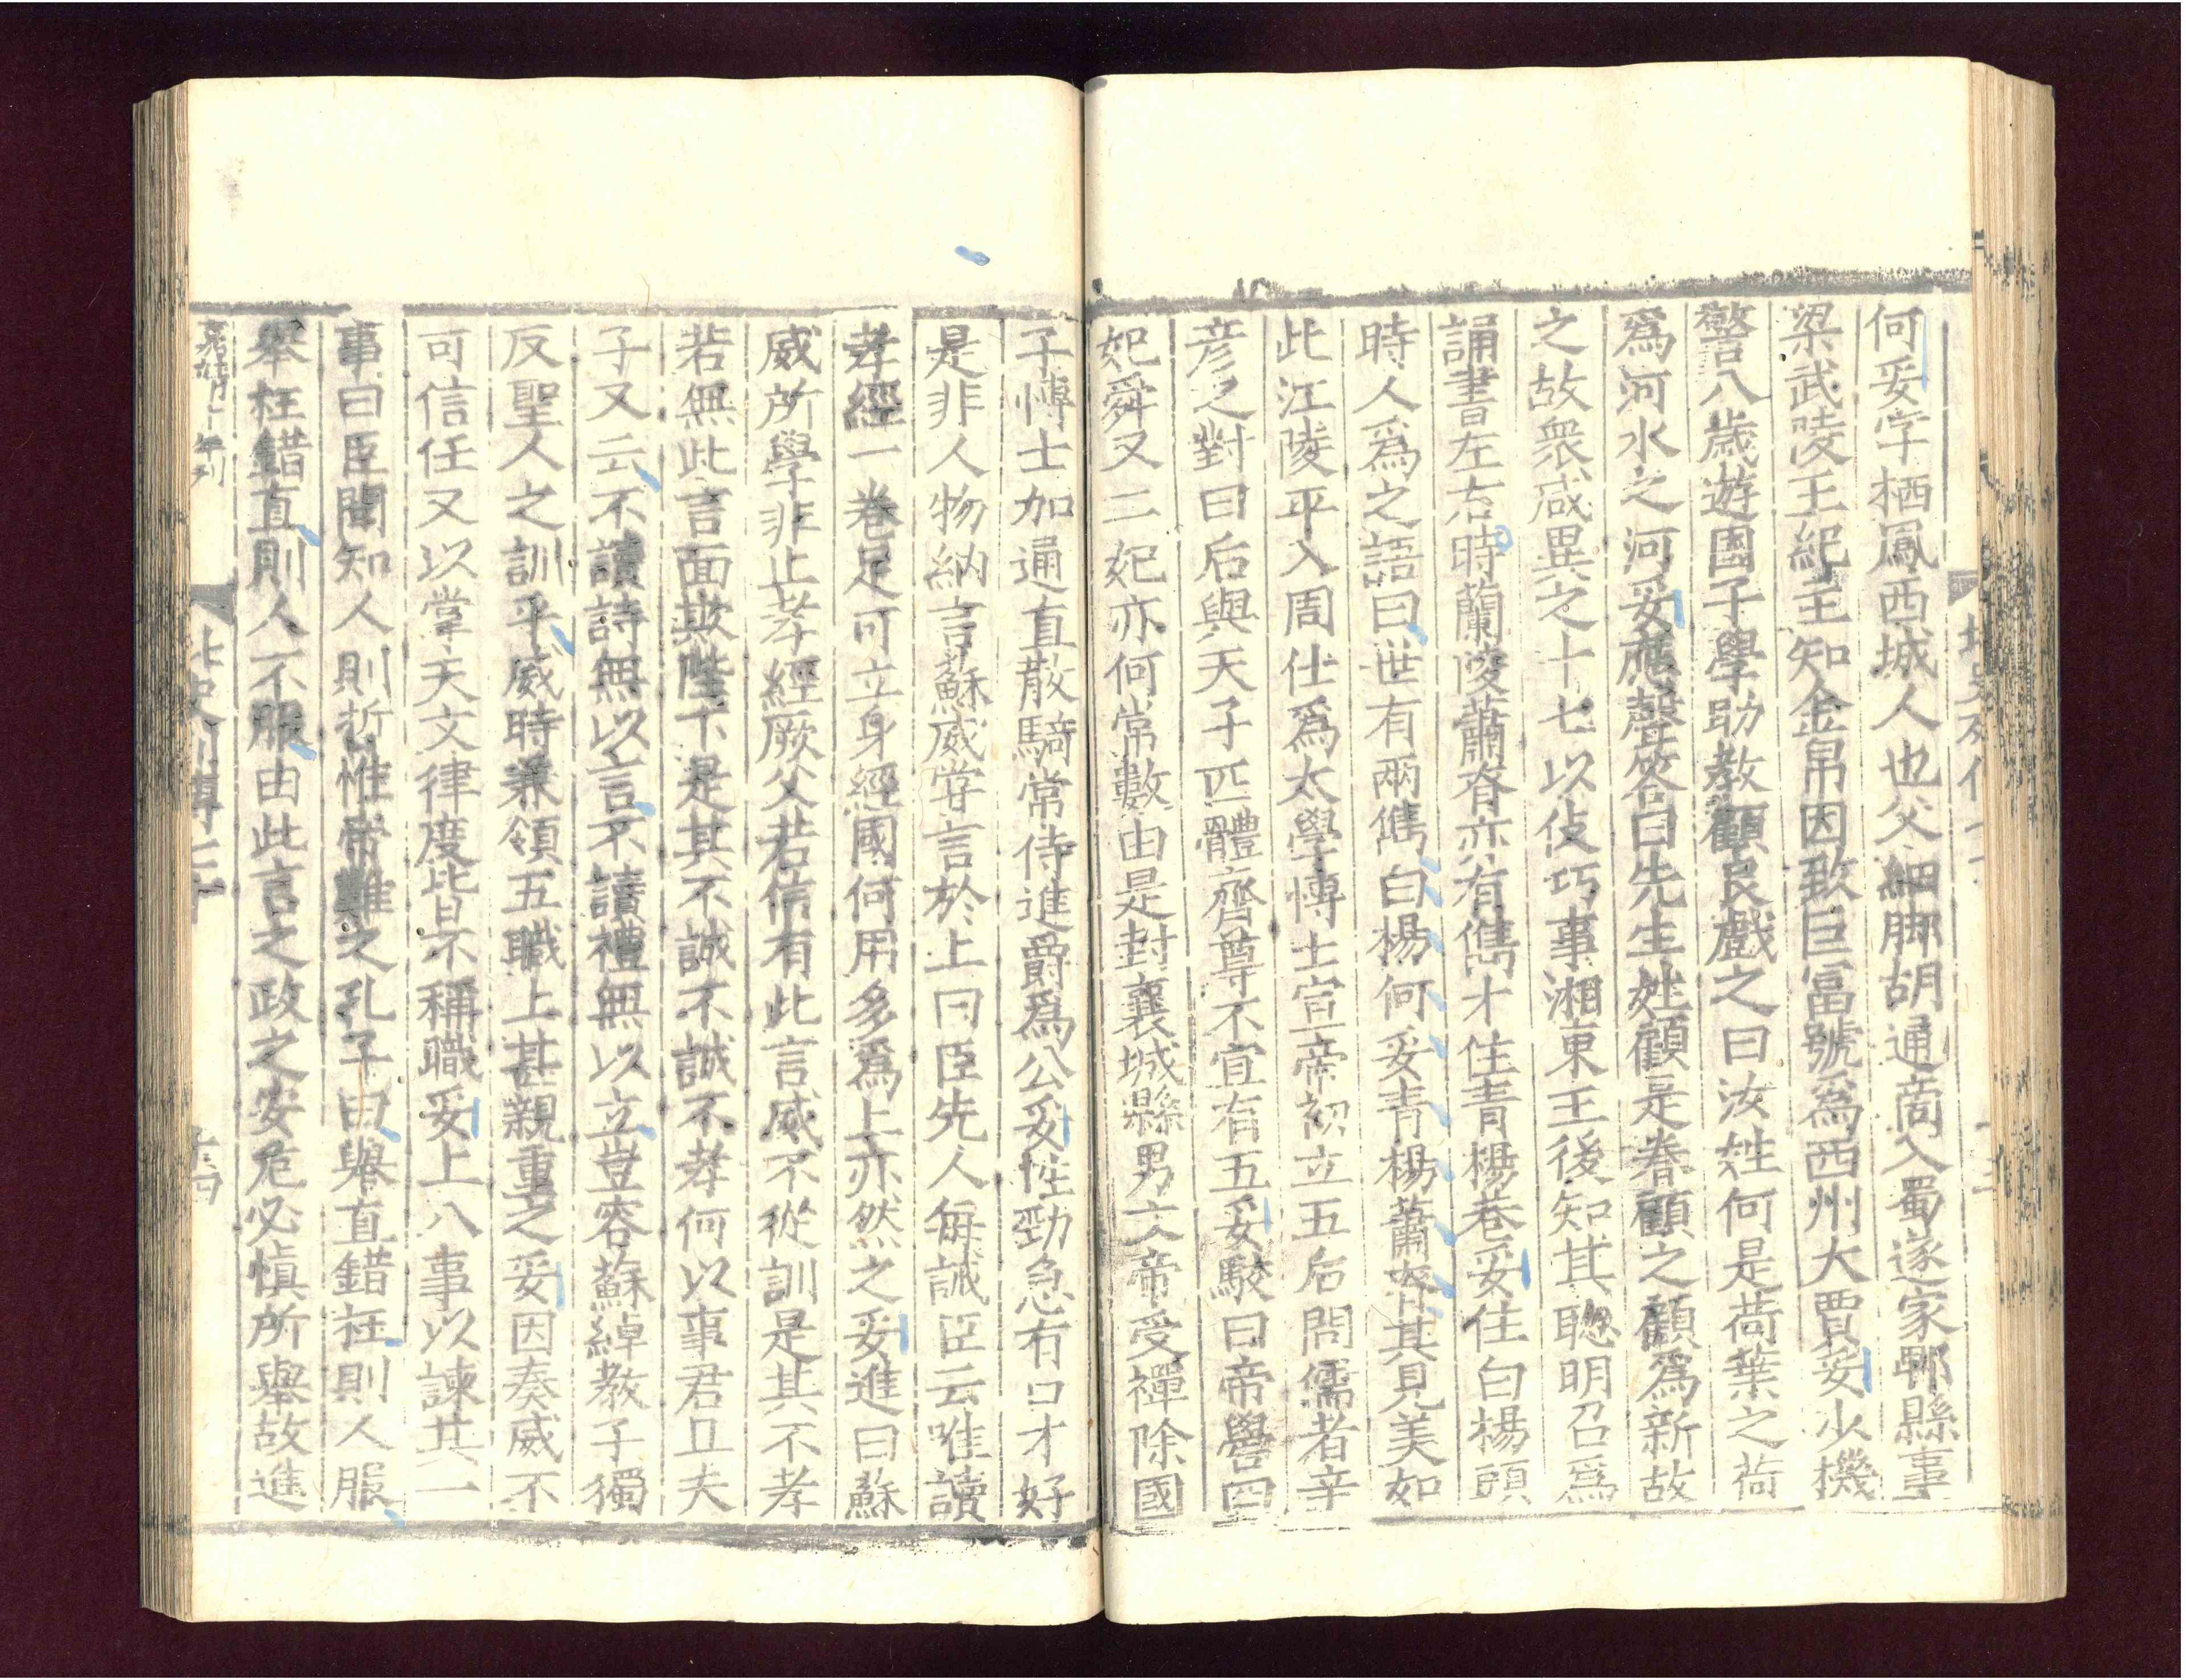 何妥字栖鳳西城人也父細脚胡通商入蜀遂家郫縣事
梁武陵王紀主知金帛因致巨富號爲西州大賈妥少機
警八歲遊國子學助教顧良戲之曰汝姓何是荷葉之荷
爲河水之河妥應聲答曰先生姓顧是眷顧之顧爲新故
之故衆咸異之十七以伎巧事湘東王後知其聰明召爲
誦書左右時蘭陵蕭眘亦有儁才住青楊巷妥住白楊頭
時人爲之語曰世有兩儁白楊何妥青楊蕭眘其見美如
此江陵平入周仕爲太學博士宣帝初立五后問儒者辛
彦之對曰后與天子匹體齊尊不宜有五妥駮曰帝嚳四
妃舜又二妃亦何常數由是封襄城縣男文帝受禪除國
子博士加通直散騎常侍進爵爲公妥性勁急有口才好
是非人物納言蘇威嘗言於上曰臣先人每誡臣云唯讀
孝經一卷足可立身經國何用多爲上亦然之妥進曰蘇
威所學非止孝經厥父若信有此言威不從訓是其不孝
若無此言面欺陛下是其不誠不誠不孝何以事君且夫
子又云不讀詩無以言不讀禮無以立豈容蘇綽教子獨
反聖人之訓乎威時兼領五職上甚親重之妥因奏威不
可信任又以掌天文律度皆不稱職妥上八事以諫其一
事曰臣聞知人則哲惟帝難之孔子曰舉直錯枉則人服
舉枉錯直則人不服由此言之政之安危必慎所舉故進
嘉靖十年刊
北史列傳七十